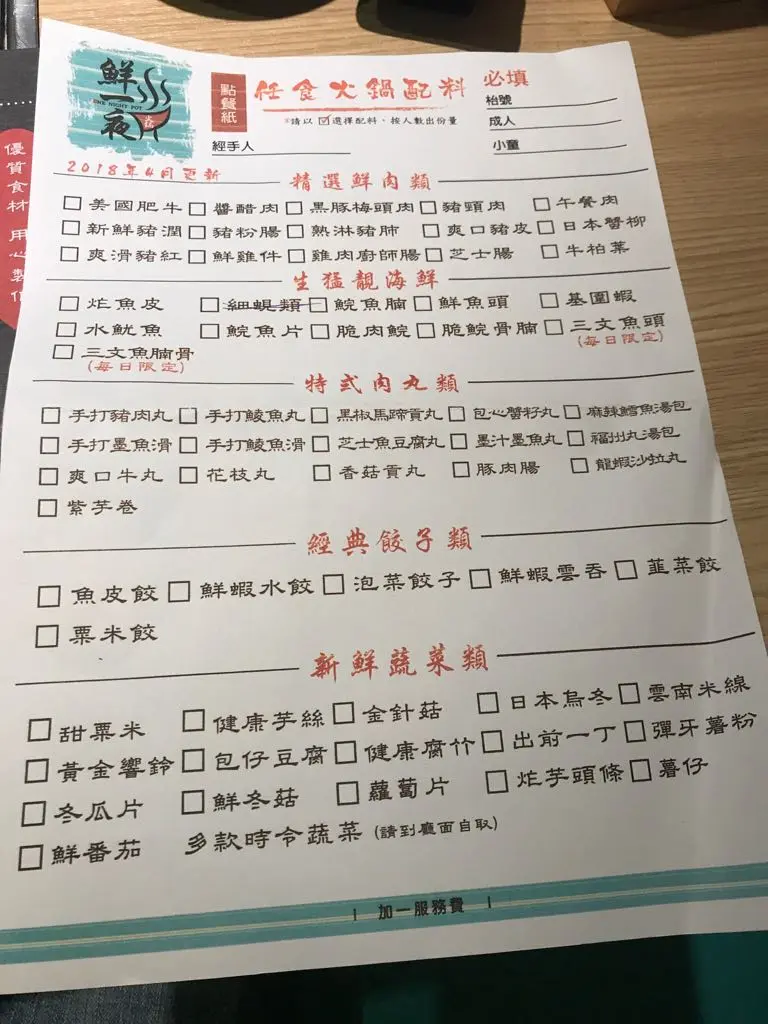 鮮一夜
ONE NIGHT POT
點餐紙
任食火鍋配料 必填
*請以☑選擇配料、按人數出份量
枱號
成人
經手人
小童
2018年4月更新
優質食材 用心製作
精選鮮肉類
□ 美國肥牛 □ 醬醋肉 □ 黑豚梅頭肉 □ 豬頸肉 □ 午餐肉
□ 新鮮豬潤 □ 豬粉腸 □ 熟淋豬肺 □ 爽口豬皮 □ 日本蟹柳
□ 爽滑豬紅 □ 鮮雞件 □ 雞肉廚師腸 □ 芝士腸 □ 牛柏葉
生猛靚海鮮
□ 炸魚皮 □ 細蜆類 □ 鯇魚腩 □ 鮮魚頭 □ 基圍蝦
□ 水魷魚 □ 鯇魚片 □ 脆肉鯇 □ 脆鯇骨腩 □ 三文魚頭
(每日限定)
□ 三文魚腩骨
(每日限定)
特式肉丸類
□ 手打豬肉丸 □ 手打鯪魚丸 □ 黑椒馬蹄貢丸 □ 包心蟹籽丸 □ 麻辣鱈魚湯包
□ 手打墨魚滑 □ 手打鯪魚滑 □ 芝士魚豆腐丸 □ 墨汁墨魚丸 □ 福州丸湯包
□ 爽口牛丸 □ 花枝丸 □ 香菇貢丸 □ 豚肉腸 □ 龍蝦沙拉丸
□ 紫芋卷
經典餃子類
□ 魚皮餃 □ 鮮蝦水餃 □ 泡菜餃子 □ 鮮蝦雲吞 □ 韮菜餃
□ 粟米餃
新鮮蔬菜類
□ 甜粟米 □ 健康芋絲 □ 金針菇 □ 日本烏冬 □ 雲南米線
□ 黃金響鈴 □ 包仔豆腐 □ 健康腐竹 □ 出前一丁 □ 彈牙薯粉
□ 冬瓜片 □ 鮮冬菇 □ 蘿蔔片 □ 炸芋頭條 □ 薯仔
□ 鮮番茄 多款時令蔬菜 (請到廳面自取)
| 加一服務費 |